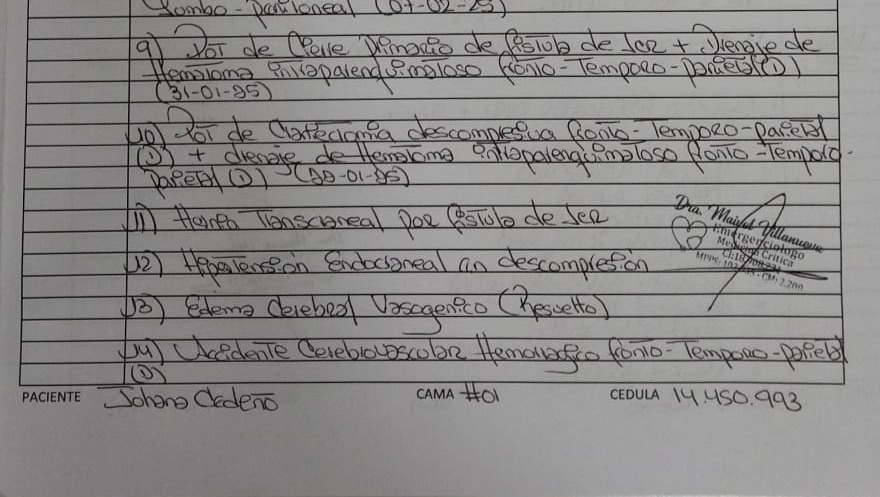 Lombo-peritoneal (07-02-25)
9) POT de Cierre Primario de fistula de LCR + Drenaje de
Hematoma intraparenquimatoso fronto-Temporo-parietal (D)
(31-01-25)
10) POT de Crateciomia descompresiva fronto-Temporo-parietal
(D) + drenaje de Hematoma intraparenquimatoso fronto-Temporo-
parietal (D) (29-01-25)
11) Hernia Transcraneal por fistula de LCR
12) Hipertension Endocraneal en descompresion
13) Edema Cerebral Vasogenico (Resuelto)
14) Accidente Cerebrovascular Hemorragico fronto-Temporo-parietal
(D)
Dra. Maivel Villanueva
Emergenciologo
Medicina Critica
PACIENTE Johana Cedeño CAMA #01 CEDULA 14.450.993